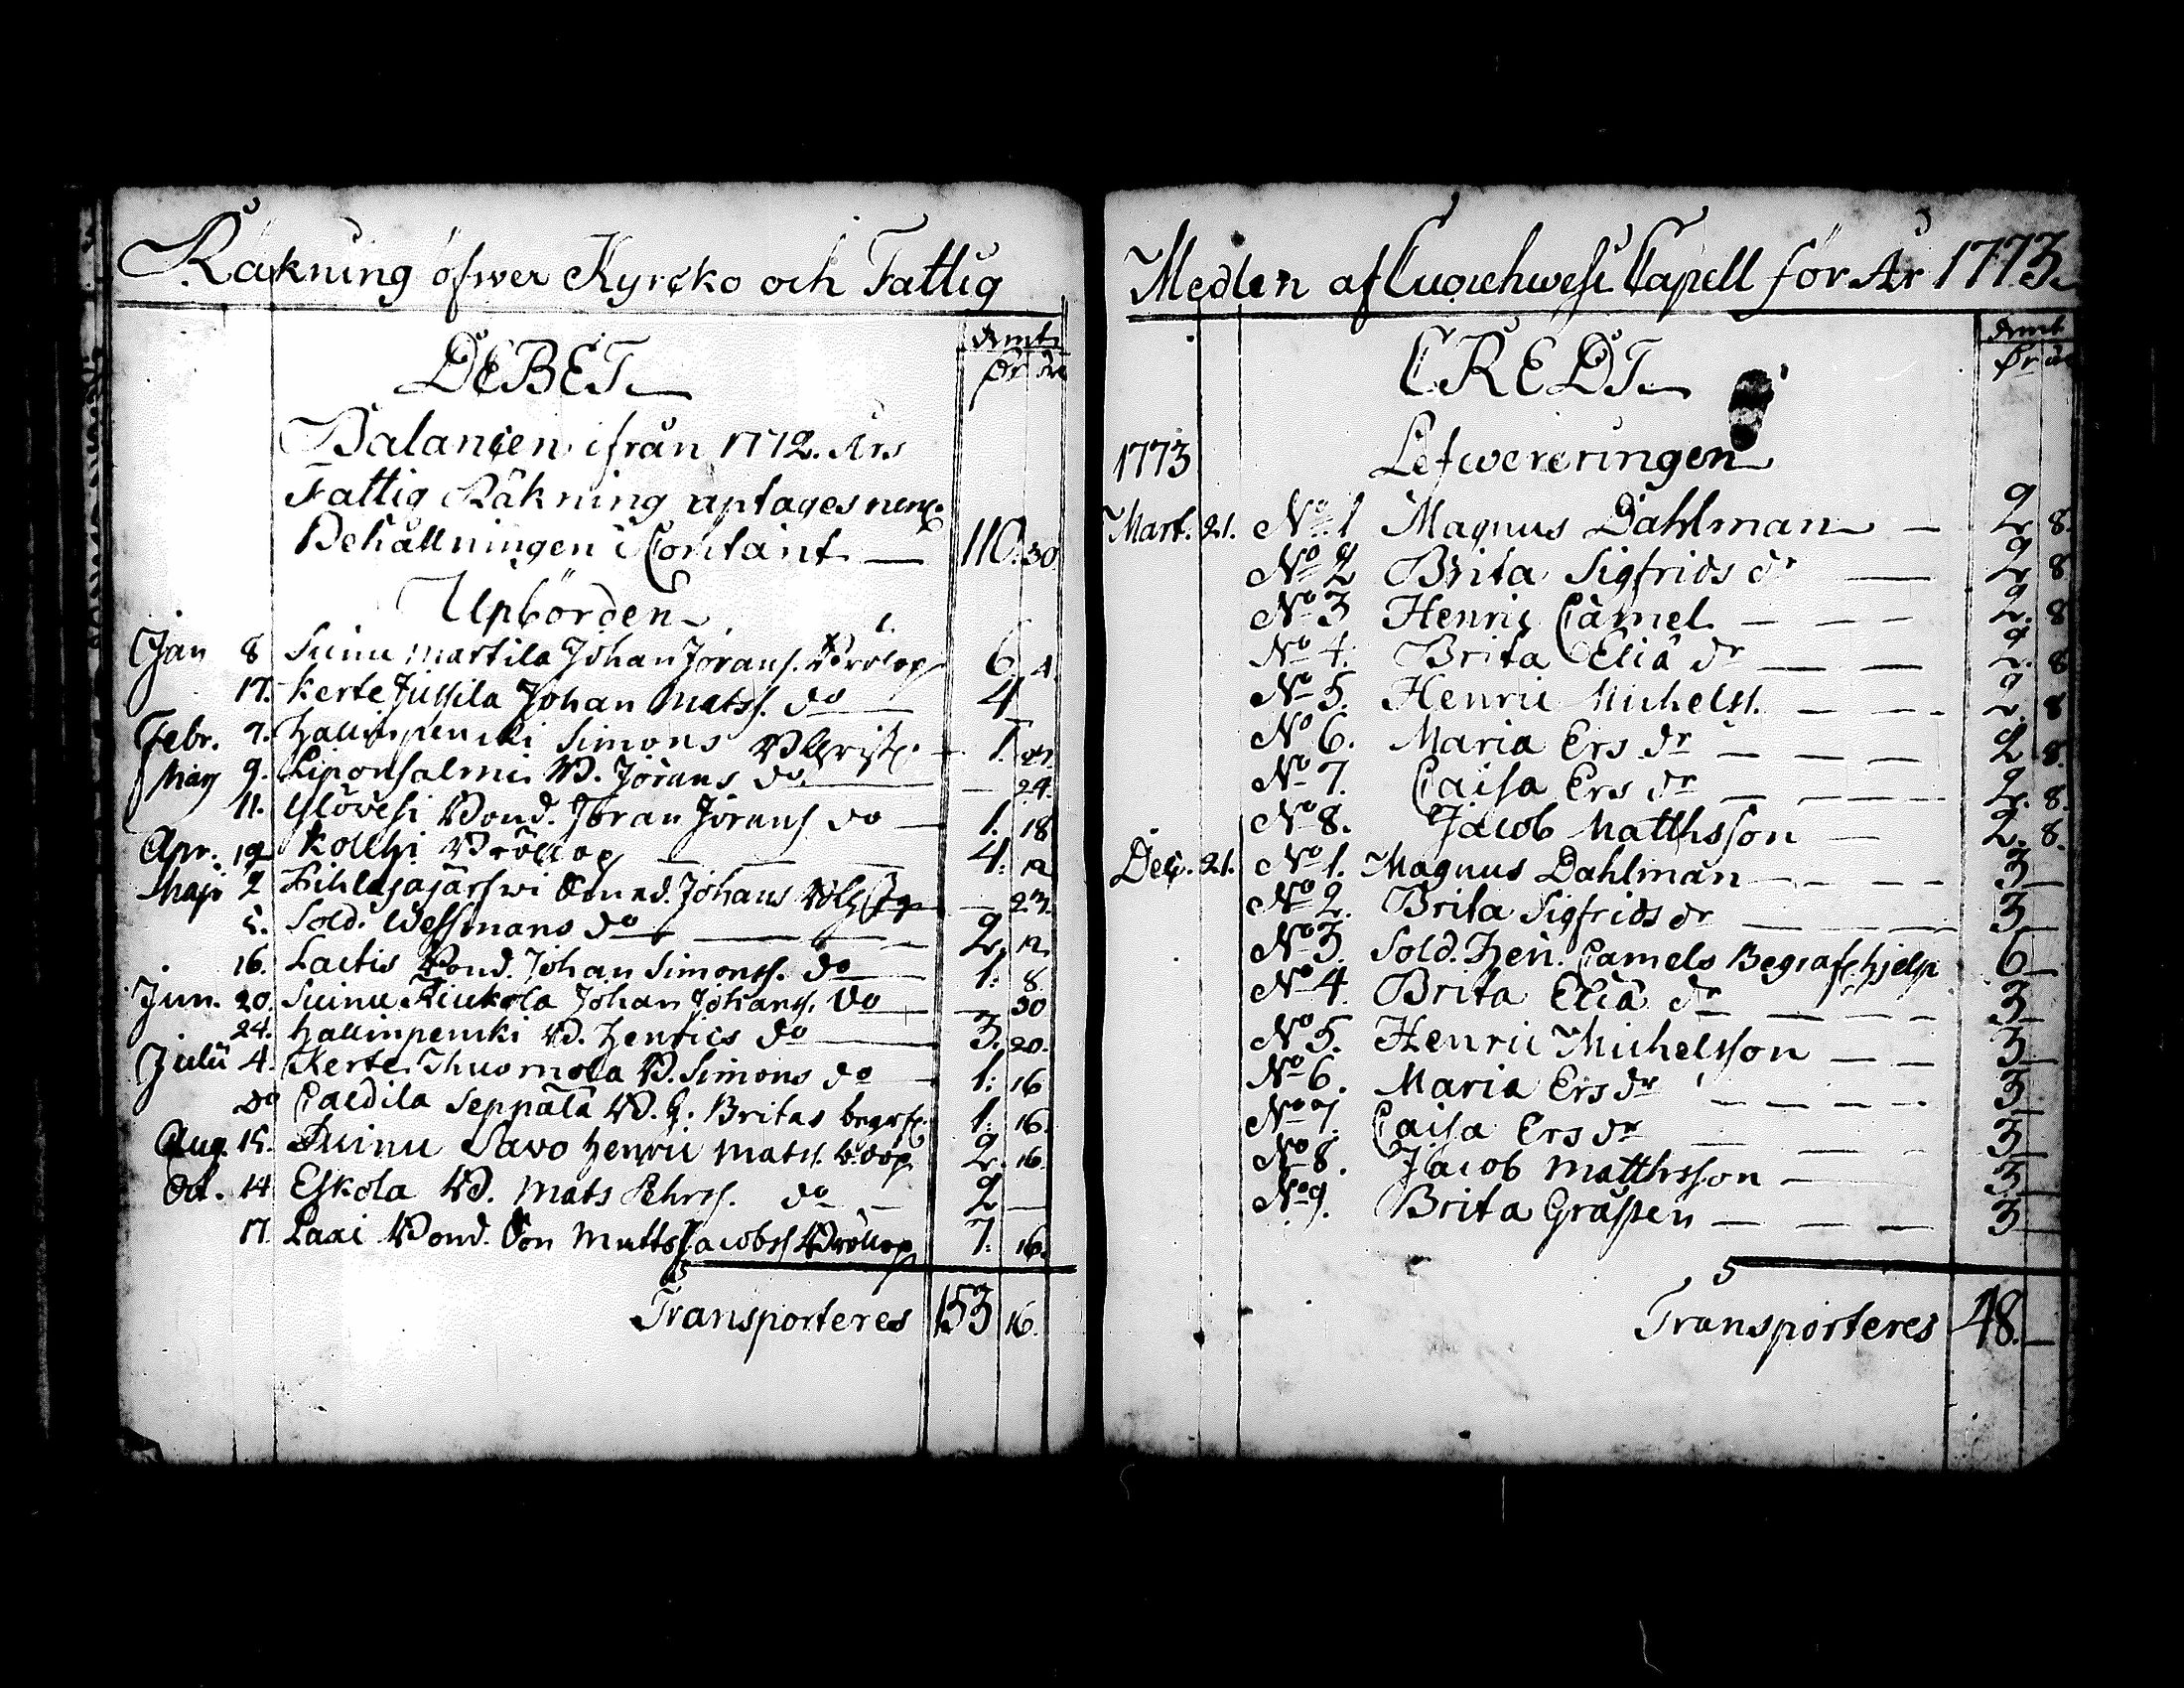 Räkning öfwer Kyrcko och Fattig
DEBET
Balancen ifrån 1772. Års
Fattig Räkning uptages nem.
Behållningen i Contant — 110. 30
Upbörden
Jan 8 Suinu Martila Johan Jörans. Bröllop 6. 4.
17. Kerte Jussila Johan Matss. do — 4
Febr. 7. Hallinpencki Simons 1.
9. Liponsalmi W. Jörans do — 24.
11. Ylövesi Bond. Jöran Jörans do — 1. 18
Apr. 12 Bröllop — 4. 12
Maji 2 Johans — 23.
5. Sold. Wessmans do — 2. 12
16. Lactis Bond. Johan Simonss. do — 1. 8
Jun. 20. Suinu Kiukola Johan Johans. do — 30
24. Hallinpencki W. Henrics do — 3. 20.
Julii 4. Kerte W. Simons do — 1: 16
do Caldila Seppälä W. H. Britas begrafn. 1. 16.
Aug. 15. Suinu Savo Henric Mats. 2. 16.
Oct. 14 Eskola W. Mats Pehrss. do — 2 —
17. Laxi Bond. Son Matts Jacobss Bröllop 7. 16.
Transporteres 153 16.
Medlen af Cuorehwesi Capell för År 1773.
CREDT
1773 Lefwereringen
Mart. 21. No 1 Magnus Dahlman — 2 8.
No 2 Brita Sigfrids dr — 2 8
No 3 Henric Camel — 2. 8
No 4. Brita Eliä dr — 2. 8
No 5. Henric Michelss. — 2. 8
No 6. Maria Ers dr — 2 8.
No 7. Caisa Ers dr — 2. 8.
No 8. Jacob Matthsson — 2. 8.
Dec. 21. No 1. Magnus Dahlman — 3 —
No 2. Brita Sigfrids dr — 3 —
No 3. Sold. Hen. Camels Begrafn. hjelp 6 —
No 4 Brita Eliä dr — 3 —
No 5. Henric Michelsson — 3 —
No 6. Maria Ers dr — 3
No 7. Caisa Ers dr — 3 —
No 8. Jacob Matthsson — 3 —
No 9. Brita Gråsten — 3 —
Transporteres 48. —